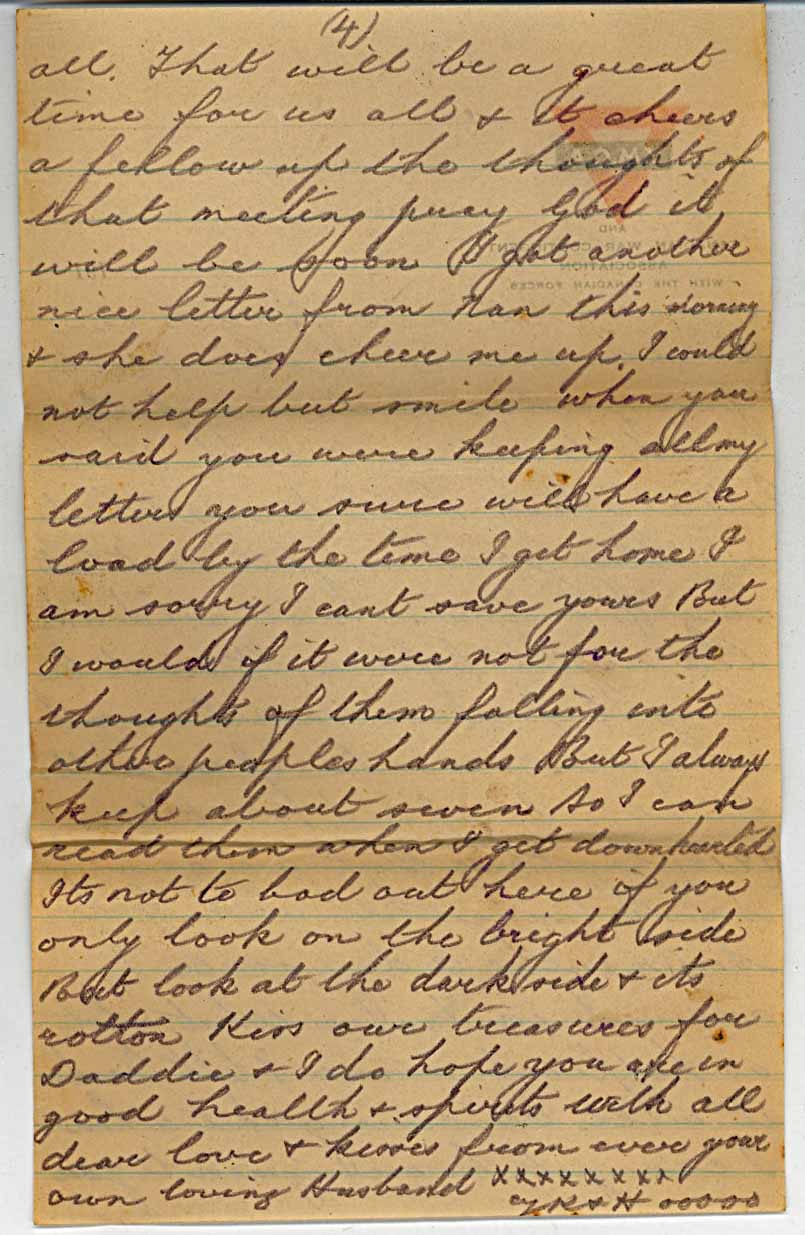 (4)
all. That will be a great
time for us all & it cheers
a fellow up the thoughts of
that meeting pray God it
will be soon I got another
nice letter from Nan this morning
& she does cheer me up. I could
not help but smile when you
said you were keeping all my
letters you sure will have a
load by the time I get home I
am sorry I cant save yours But
I would if it were not for the
thoughts of them falling into
other peoples hands But I always
keep about seven So I can
read them when I get downhearted
Its not to bad out here if you
only look on the bright side
But look at the dark side & its
rotton Kiss our treasures for
Daddie & I do hope you are in
good health & spirits with all
dear love & kisses from ever your
own loving Husband xxxxxxxx
& H ooooo
AND
ASSOCIATION
WITH THE CANADIAN FORCES